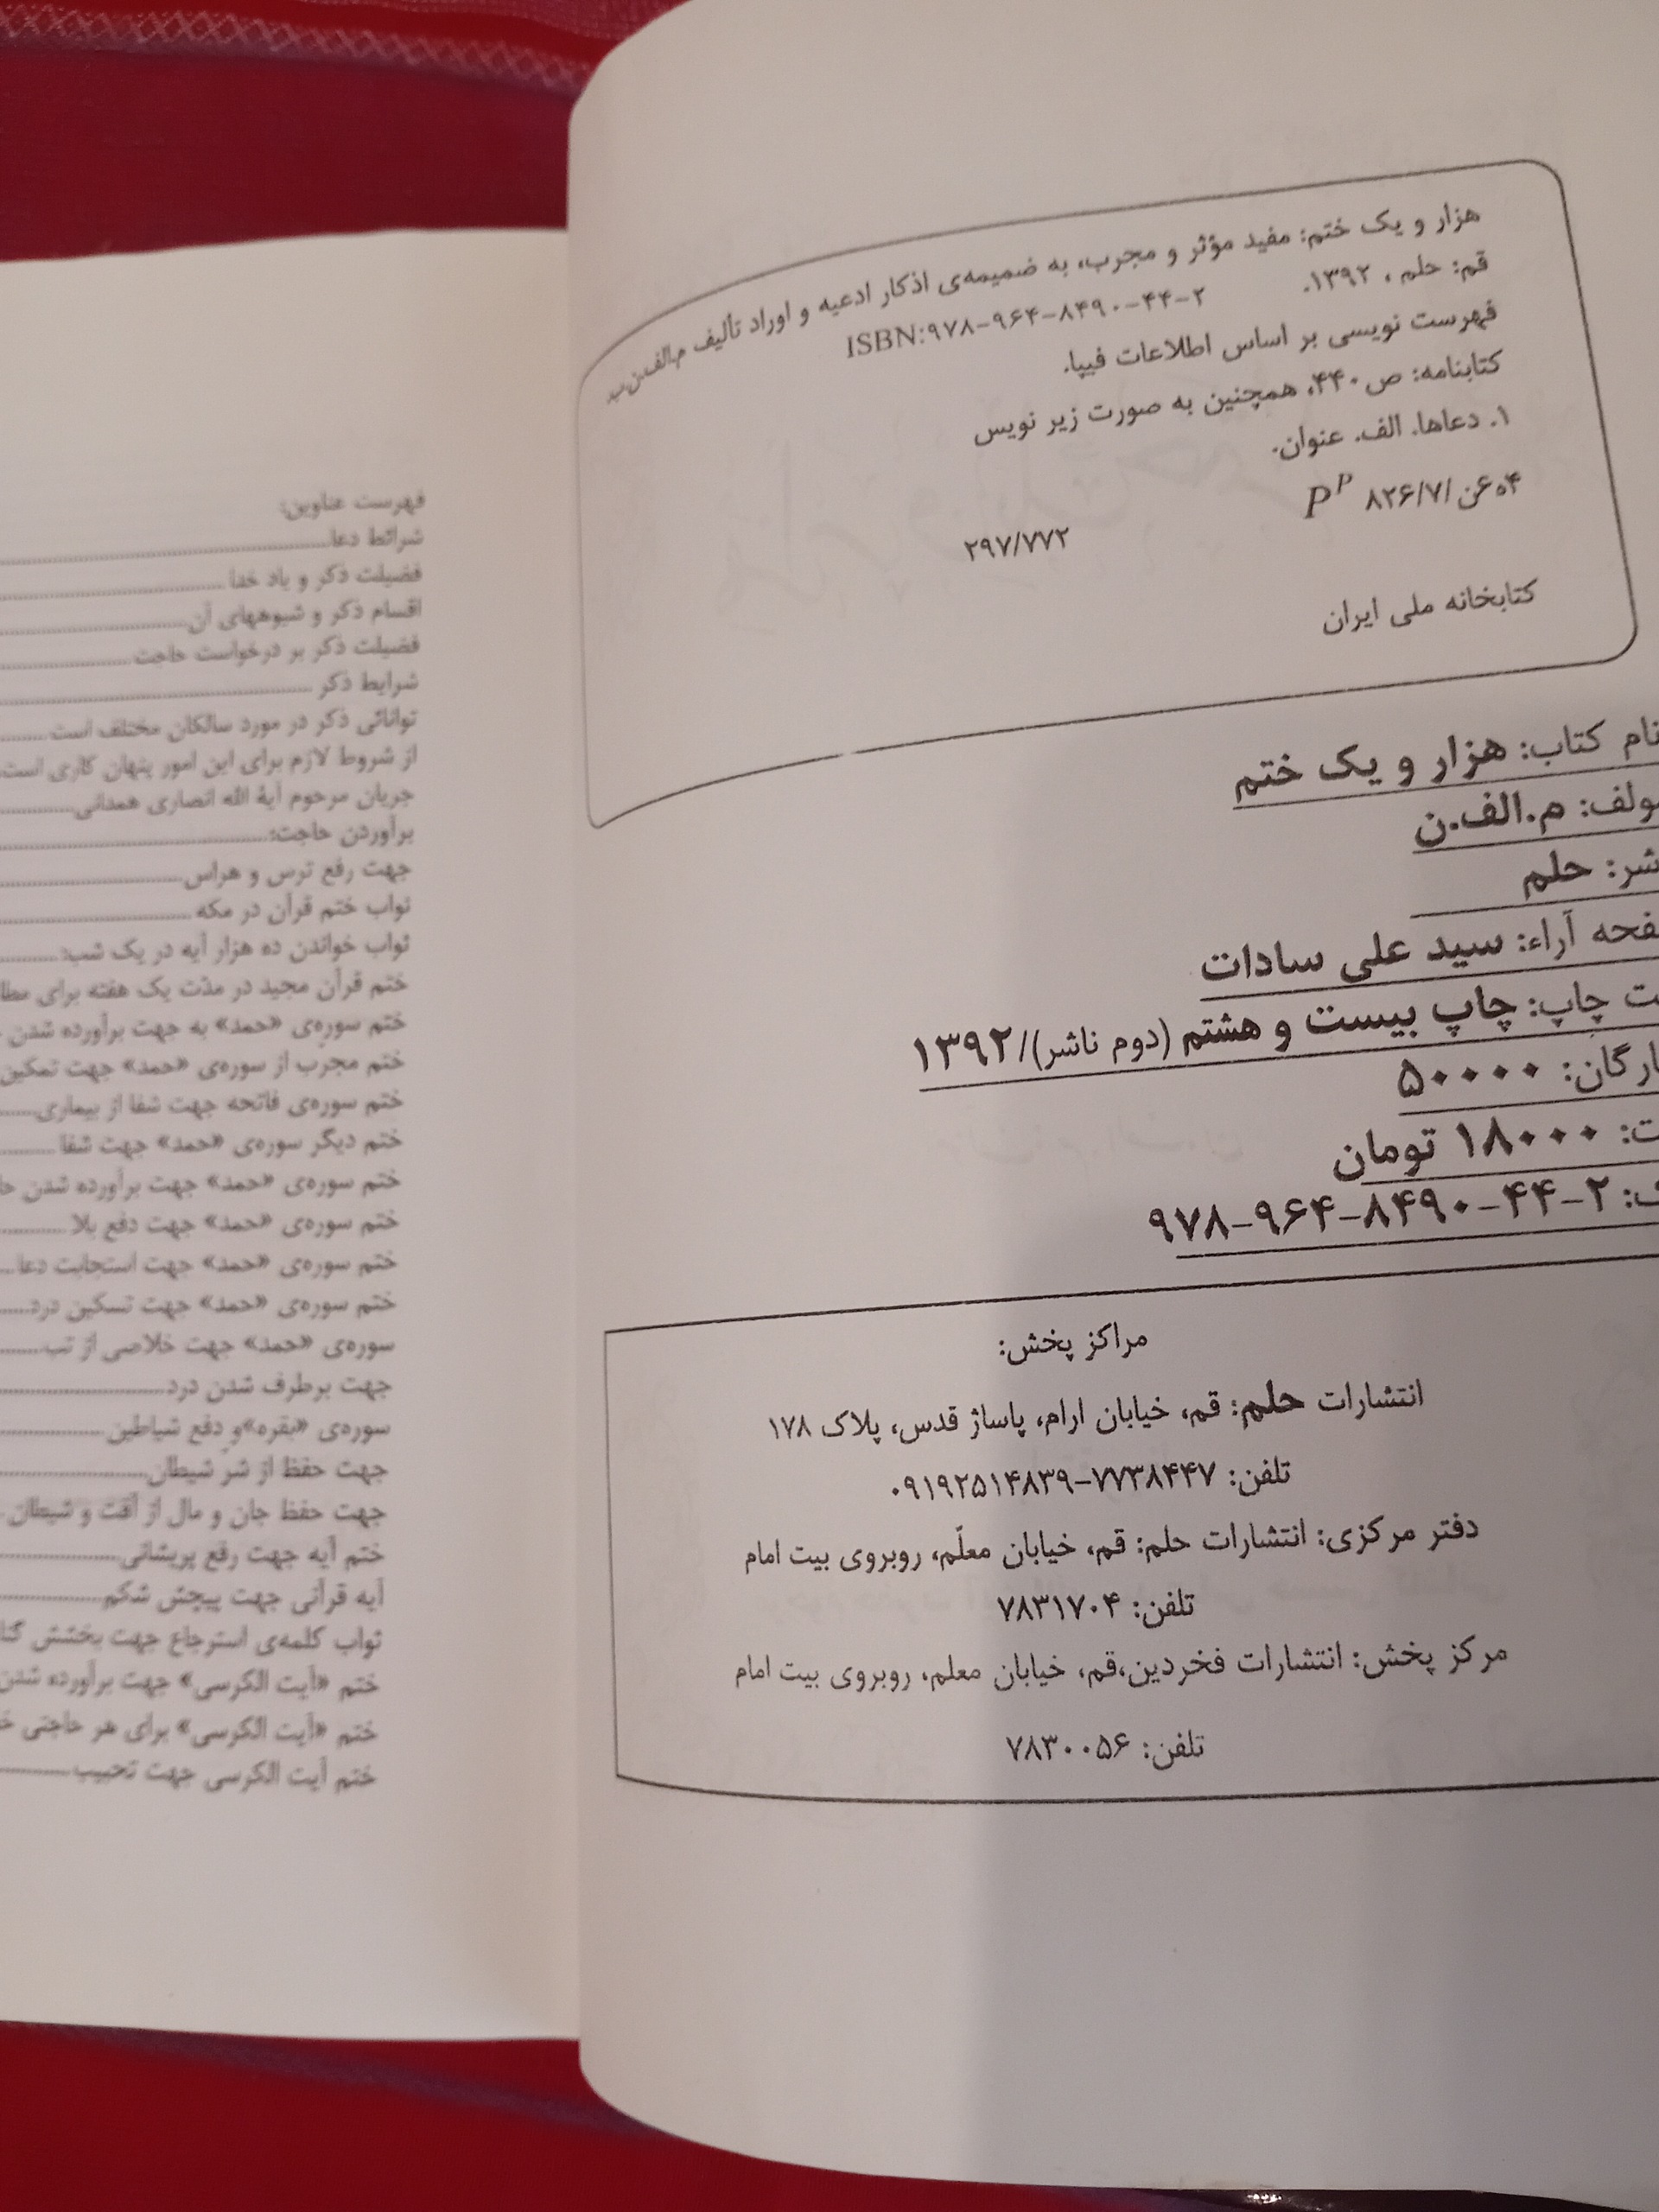 هزار و یک ختم: مفید مؤثر و مجرب، به ضمیمه‌ی اذکار ادعیه و اوراد تألیف م.الف.ن
قم: حلم ، ۱۳۹۲.
ISBN:۹۷۸-۹۶۴-۸۴۹۰-۴۴-۲
فهرست نویسی بر اساس اطلاعات فیپا.
کتابنامه: ص۴۴۰، همچنین به صورت زیر نویس
۱. دعاها. الف. عنوان.
۸۲۶/۷/ PP
۲۹۷/۷۷۲
کتابخانه ملی ایران
نام کتاب: هزار و یک ختم
م.الف.ن
حلم
آراء: سید علی سادات
چاپ: چاپ بیست و هشتم (دوم ناشر)/۱۳۹۲
۵۰۰۰۰
۱۸۰۰۰ تومان
۹۷۸-۹۶۴-۸۴۹۰-۴۴-۲
مراکز پخش:
انتشارات حلم: قم، خیابان ارام، پاساژ قدس، پلاک ۱۷۸
تلفن: ۷۷۳۸۴۴۷-۰۹۱۹۲۵۱۴۸۳۹
دفتر مرکزی: انتشارات حلم: قم، خیابان معلّم، روبروی بیت امام
تلفن: ۷۸۳۱۷۰۴
مرکز پخش: انتشارات فخردین،قم، خیابان معلم، روبروی بیت امام
تلفن: ۷۸۳۰۰۵۶
فهرست عناوین:
شرائط دعا
فضیلت ذکر و یاد خدا
اقسام ذکر و شیوههای آن
فضیلت ذکر بر درخواست حاجت
شرایط ذکر
توانائی ذکر در مورد سالکان مختلف است
از شروط لازم برای این امور پنهان کاری است
جریان مرحوم آیة الله انصاری همدانی
برآوردن حاجت:
جهت رفع ترس و هراس
ثواب ختم قرآن در مکه
ثواب خواندن ده هزار آیه در یک شب:
ختم قرآن مجید در مدّت یک هفته برای
ختم سوره‌ی «حمد» به جهت برآورده شدن
ختم مجرب از سوره‌ی «حمد» جهت تمکین
ختم سوره‌ی فاتحه جهت شفا از بیماری
ختم دیگر سوره‌ی «حمد» جهت شفا
ختم سوره‌ی «حمد» جهت برآورده شدن
ختم سوره‌ی «حمد» جهت دفع بلا
ختم سوره‌ی «حمد» جهت استجابت دعا
ختم سوره‌ی «حمد» جهت تسکین درد
سوره‌ی «حمد» جهت خلاصی از تب
جهت برطرف شدن درد
سوره‌ی «بقره»و دفع شیاطین
جهت حفظ از شر شیطان
جهت حفظ جان و مال از آفت و شیطان
ختم آیه جهت رفع پریشانی
آیه قرآنی جهت پیچش شکم
ثواب کلمه‌ی استرجاع جهت بخشش
ختم «آیت الکرسی» جهت برآورده شدن
ختم «آیت الکرسی» برای هر حاجتی
ختم آیت الکرسی جهت تحبیب